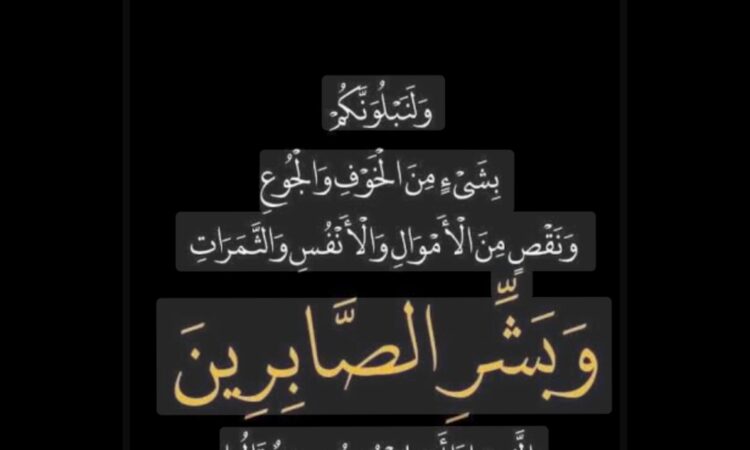 وَلَنَبْلُوَنَّكُمْ
بِشَىْءٍ مِنَ الْخَوْفِ وَالْجُوعِ
وَنَقْصٍ مِنَ الْأَمْوَالِ وَالْأَنْفُسِ وَالثَّمَرَاتِ
وَبَشِّرِ الصَّابِرِينَ